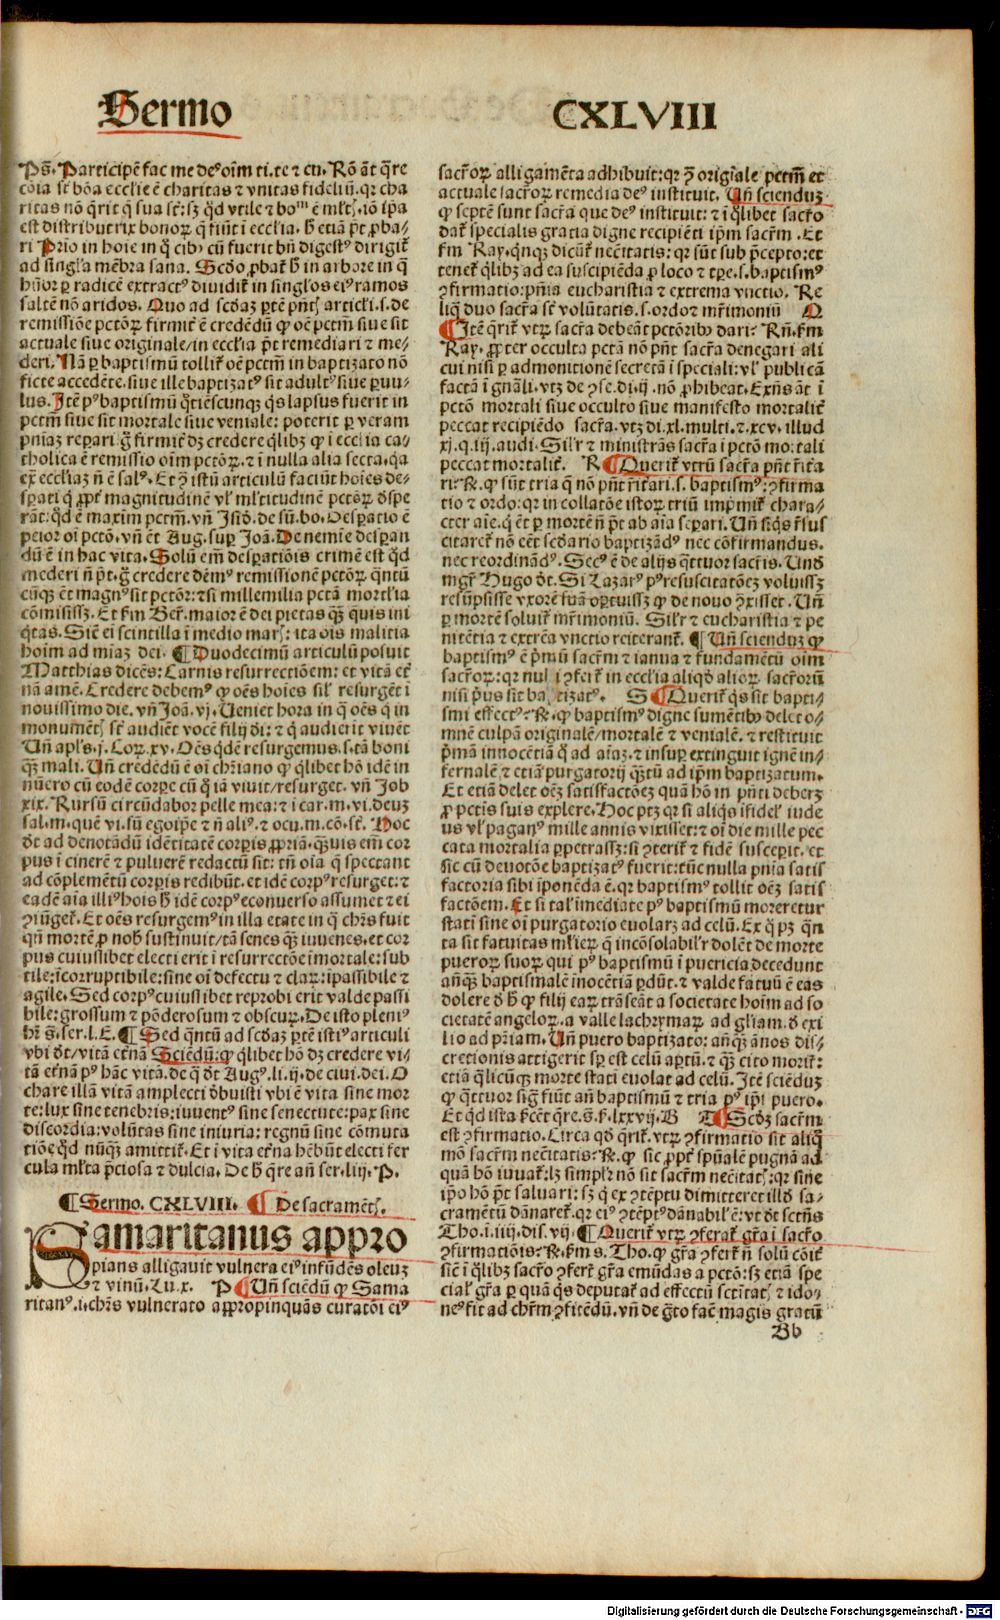 Sermo CXLVIII
Ps̄. Participē fac me deꝰ oīm ti. te ⁊ cū. Rō āt q̄re
cōia st̄ bōa ecclīe ē charitas ⁊ vnitas fideliū. qꝛ cha
ritas nō q̄rit q̄ sua st̄: sꝫ qd̄ vtile ⁊ boᵐ ē ml̄tꝭ. iō ip̄a
est distributrix bonoꝝ q̄ fiūt i ecclīa. h̄ etiā pt̄ ꝓba/
ri Prīo in hoīe in q̄ cibꝰ cū fuerit bn̄ digestꝰ dirigit̄
ad singl̄a mēbra sana. Scd̄o ꝓbat̄ h̄ in arbore in q̄
hūor ꝑ radicē extractꝰ diuidit̄ in singl̄os eiꝰ ramos
saltē nō aridos. Quo ad scd̄aꝫ ꝑtē pn̄tꝭ articl̄i. s. de
remissiōe pctōꝝ firmit̄ ē credēdū ꝙ oē pctm̄ siue sit
actuale siue originale/in ecclīa pt̄ remediari ⁊ me/
deri. Nā ꝑ baptismū tollit̄ oē pctm̄ in baptizato nō
ficte accedēte. siue ille baptizatꝰ sit adultꝰ siue ꝑuu/
lus. Itē pꝰ baptismū q̄tiēscunqꝫ q̄s lapsus fuerit in
pctm̄ siue sit mortale siue veniale: poterit ꝑ veram
pn̄iaꝫ reꝑari ḡ firmit̄ dꝫ credere q̄libꝫ ꝙ i ecclīa ca/
tholica ē remissio oīm pctōꝝ. ⁊ i nulla alia secta. qa
ex̄ ecclīaꝫ n̄ ē salꝰ. Et ꝯ istū articulū faciūt hoīes de/
sꝑati q̄ ꝓpt̄ magnitudinē vl̓ ml̄titudinē pctōꝝ dꝭꝑe
rāt: qd̄ ē maxim pctm̄. vn̄ Isid̄. de sū. bo. Desꝑatio ē
peior oī pctō. vn̄ ēt Aug. suꝑ Joā. De nemīe desꝑan
dū ē in hac vita. Solū em̄ desꝑatiōis crimē est qd̄
mederi n̄ pt̄. ḡ credere dēmꝰ remissionē pctōꝝ q̄ntū
cūqꝫ ēt magnꝰ sit pctōr: ⁊ si millemilia pctā mortl̄ia
cōmisissꝫ. Et ẜm Ber̄. maior ē dei pietas q̄ꝫ quis ini
q̄tas. Sic̄ ei scintilla i medio marꝭ: ita oīs malitia
hoīm ad mīaꝫ dei. ¶ Duodecimū articulū posuit
Matthias dicēs: Carnis resurrectiōem: et vitā et̄
nā amē. Credere debemꝰ ꝙ oēs hoīes sil̓ resurgēt i
nouissimo die. vn̄ Joā. vj. Ueniet hora in q̄ oēs q̄ in
monumētꝭ st̄ audiēt vocē filij di: ⁊ q̄ audierīt viuēt
Un̄ apl̓s. j. Coꝝ. xv. Oēs q̄dē resurgemus. s. tā boni
q̄ꝫ mali. Un̄ credēdū ē oī chr̄iano ꝙ q̄libet hō idē in
nūero cū eodē corꝑe cū q̄ ia viuit/resurget. vn̄ Job
xix. Rursū circūdabor pelle mea: ⁊ i car. m. vi. deuꝫ
sal. m. quē vi. sū ego ip̄e ⁊ n̄ aliꝰ. ⁊ ocu. m. cō. st̄. Hoc
d̄t ad denotādū idētitatē corꝑis ꝓpriā. q̄ꝫuis em̄ cor
pus i cinerē ⁊ puluerē redactū sit: tn̄ oīa q̄ spectant
ad cōplementū corꝑis redibūt. et idē corpꝰ resurget: ⁊
eadē aīa illiꝰ hoīs h̄ idē corpꝰ econuerso assumet ⁊ ei
ꝯiūget̄. Et oēs resurgemꝰ in illa etate in q̄ chr̄s fuit
qn̄ mortē ꝓ nob̄ sustinuit/tā senes q̄ꝫ iuuenes. et cor
pus cuiuslibet electi erit i resurrectōe imortale: sub
tile: icorruptibile: sine oī defectu ⁊ claꝝ: ipassibile ⁊
agile. Sed corpꝰ cuiuslibet reprobi erit valde passi
bile: grossum ⁊ pōderosum ⁊ obscuꝝ. De isto pleniꝰ
hr̄ s̄. ser. l. E. ¶ Sed q̄ntū ad scd̄aꝫ ꝑtē istiꝰ articuli
vbi d̄t/vitā et̄nā Sciēdū: ꝙ q̄libet hō dꝫ credere vi/
tā et̄nā pꝰ hāc vitā. de q̄ d̄t Augꝰ. li. ij. de ciui. dei. O
chare illā vitā amplecti dꝫbuisti vbi ē vita sine mor
te: lux sine tenebris: iuuentꝰ sine senectute: pax sine
discordia: volūtas sine iniuria: regnū sine cōmuta
tiōe qd̄ nūqꝫ amittit̄. Et i vita et̄na hēbūt electi fer
cula ml̄ta p̄ciosa ⁊ dulcia. De h̄ q̄re an̄ ser. liij. P.
¶ Sermo. CXLVIII. ¶ De sacramētꝭ.
Samaritanus appro
pians alligauit vulnera eiꝰ infūdēs oleuꝫ
⁊ vinū. Lu. x. P ¶ Un̄ sciēdū ꝙ Sama
ritanꝰ. i. chr̄s vulnerato appropinquās curatōi eiꝰ
sacr̄oꝝ alligamēta adhibuit: qꝛ ꝯ origīale pctm̄ et
actuale sacr̄oꝝ remedia deꝰ instituit. Un̄ sciendūꝫ
ꝙ septē sunt sacr̄a que deꝰ instituit: ⁊ i q̄libet sacr̄o
dat̄ specialis gratia digne recipiēti ip̄m sacr̄m. Et
ẜm Ray. qnqꝫ dicūt̄ nēcitatis: qꝛ sūt sub p̄cepto: et
tenet̄ q̄libꝫ ad ea suscipiēda ꝓ loco ⁊ tꝑe. s. baptismꝰ
ꝯfirmatio: pn̄ia eucharistia ⁊ extrema vnctio. Re
liq̄ duo sacr̄a st̄ volūtatis. s. ordo ⁊ mr̄imoniū Q
¶ Itē q̄rit̄ vtꝝ sacr̄a debeāt pctōribꝰ dari: Rn̄. ẜm
Ray. ꝓpter occulta pctā nō pn̄t sacr̄a denegari ali
cui nisi ꝑ admonitionē secretā i speciali: vl̓ publicā
factā i gn̄ali. vtꝫ de ꝯse. di. ij. nō ꝓhibeat. Exn̄s āt i
pctō mortali siue occulto siue manifesto mortalit̄
peccat recipiēdo sacr̄a. vtꝫ di. xl. multi. ⁊. xcv. illud
xj. q. iij. audi. Sil̓r ⁊ ministrās sacr̄a i pctō mortali
peccat mortalit̄. R ¶ Querit̄ vtrū sacr̄a pn̄t itera
ri: R. ꝙ sūt tria q̄ nō pn̄t iterari. s. baptismꝰ: ꝯfirma
tio ⁊ ordo: qꝛ in collatōe istoꝝ triū imprimit̄ chara/
cter aīe. q̄ ēt ꝑ mortē n̄ pt̄ ab aīa seꝑari. Un̄ siq̄s resus
citaret̄ nō eēt scd̄ario baptizādꝰ nec cōfirmandus.
nec reordinādꝰ. Secꝰ ē de alijs q̄ttuor sacr̄is. Unꝺ
mgr̄ Hugo d̄t. Si Lazarꝰ pꝰ resuscitatōeꝫ voluissꝫ
resūpsisse vxorē suā oꝑtuissꝫ ꝙ de nouo ꝯxisset. Un̄
ꝑ mortē soluit̄ mr̄imoniū. Sil̓r ⁊ eucharistia ⁊ pe
nitētia ⁊ extrēa vnctio reiterant̄. ¶ Un̄ sciendūꝫ ꝙ
baptismꝰ ē p̄mū sacr̄m ⁊ ianua ⁊ fundamētū oīm
sacr̄oꝝ: qꝛ nul̓ i ꝯfert̄ in ecclīa aliqd̄ alioꝝ sacr̄orū
nisi prius sit baptizatꝰ. S ¶ Querit̄ q̄s sit bapti/
smi effectꝰ: R. ꝙ baptismꝰ digne sumētibꝰ delet o/
mnē culpā originalē/mortalē ⁊ venialē. ⁊ restituit
p̄mā innocētiā q̄ ad aīaꝫ. ⁊ insuꝑ extinguit ignē in/
fernalē ⁊ etiā purgatorij q̄ꝫtū ad ip̄m baptizatum.
Et etiā delet oēꝫ satisfactōeꝫ quā hō in pn̄ti deberꝫ
ꝓ pctis suis explere. Hoc ptꝫ qꝛ si aliq̄s ifidel̓ iude
us vl̓ paganꝰ mille annis vixisset: ⁊ oī die mille pec
cata mortalia ꝑpetrassꝫ: si ꝯterit̄ ⁊ fidē susceꝑit. et
sic cū deuotōe baptizatꝰ fuerit: tūc nulla pn̄ia satis
factoria sibi iponēda ē. qꝛ baptismꝰ tollit oēꝫ satis
factōem. Et si tal̓ imediate pꝰ baptismū moreretur
stati sine oī purgatorio euolarꝫ ad celū. Ex q̄ pꝫ q̄n
ta sit fatuitas ml̓ieꝝ q̄ incōsolabil̓r dolēt de morte
pueroꝝ suoꝝ qui pꝰ baptismū i puericia decedunt
an̄q̄ꝫ baptismalē inocētiā ꝑdūt. ⁊ valde fatuū ē eas
dolere d̄ h̄ ꝙ filij eaꝝ trāseāt a societate hoīm ad so
cietatē angeloꝝ. a valle lachrymaꝝ ad gl̄iam. d̄ exi
lio ad pr̄iam. Un̄ puero baptizato: an̄q̄ꝫ ānos dis/
cretionis attigerit sꝑ est celū aꝑtū. ⁊ q̄ꝫ cito morit̄:
etiā q̄licūqꝫ morte stati euolat ad celū. Itē sciēdūꝫ
ꝙ q̄ttuor siḡ fiūt an̄ baptismū ⁊ tria pꝰ ip̄i puero.
Et qd̄ ista fac̄ēt q̄re. s̄. f. lxxvij. B T ¶ Scd̄ꝫ sacr̄m
est ꝯfirmatio. Circa qd̄ q̄rit̄. vtꝝ ꝯfirmatio sit aliq̄
mō sacr̄m nēcitatis: R. ꝙ sic ꝓpt̄ spūalē pugnā ad
quā hō iuuat̄: lꝫ simpl̓r nō sit sacr̄m nēcitatꝭ: qꝛ sine
ip̄o hō pt̄ saluari: sꝫ q̄ ex ꝯtēptu dimitteret illd̄ sa/
cramētū dānaret̄. qꝛ eiꝰ ꝯtēptꝰ dānabil̓ ē: vt d̄t sctn̄s
Tho. i. iiij. dis. vij. ¶ Querit̄ vtꝝ ꝯferat̄ gr̄a i sacr̄o
ꝯfirmatiōis: R. ẜm s. Tho. ꝙ gr̄a ꝯfert̄ n̄ solū cōit̄
sic̄ i q̄libꝫ sacr̄o ꝯfert̄ gr̄a emūdās a pctō: sꝫ etiā spe
cial̓ gr̄a ꝑ quā q̄s deputat̄ ad effectū sctītatꝭ ⁊ ido/
neꝰ fit ad chr̄m ꝯfitēdū. vn̄ de g̈to fac̄ magis gratū
Bb
Digitalisierung gefördert durch die Deutsche Forschungsgemeinschaft - DFG